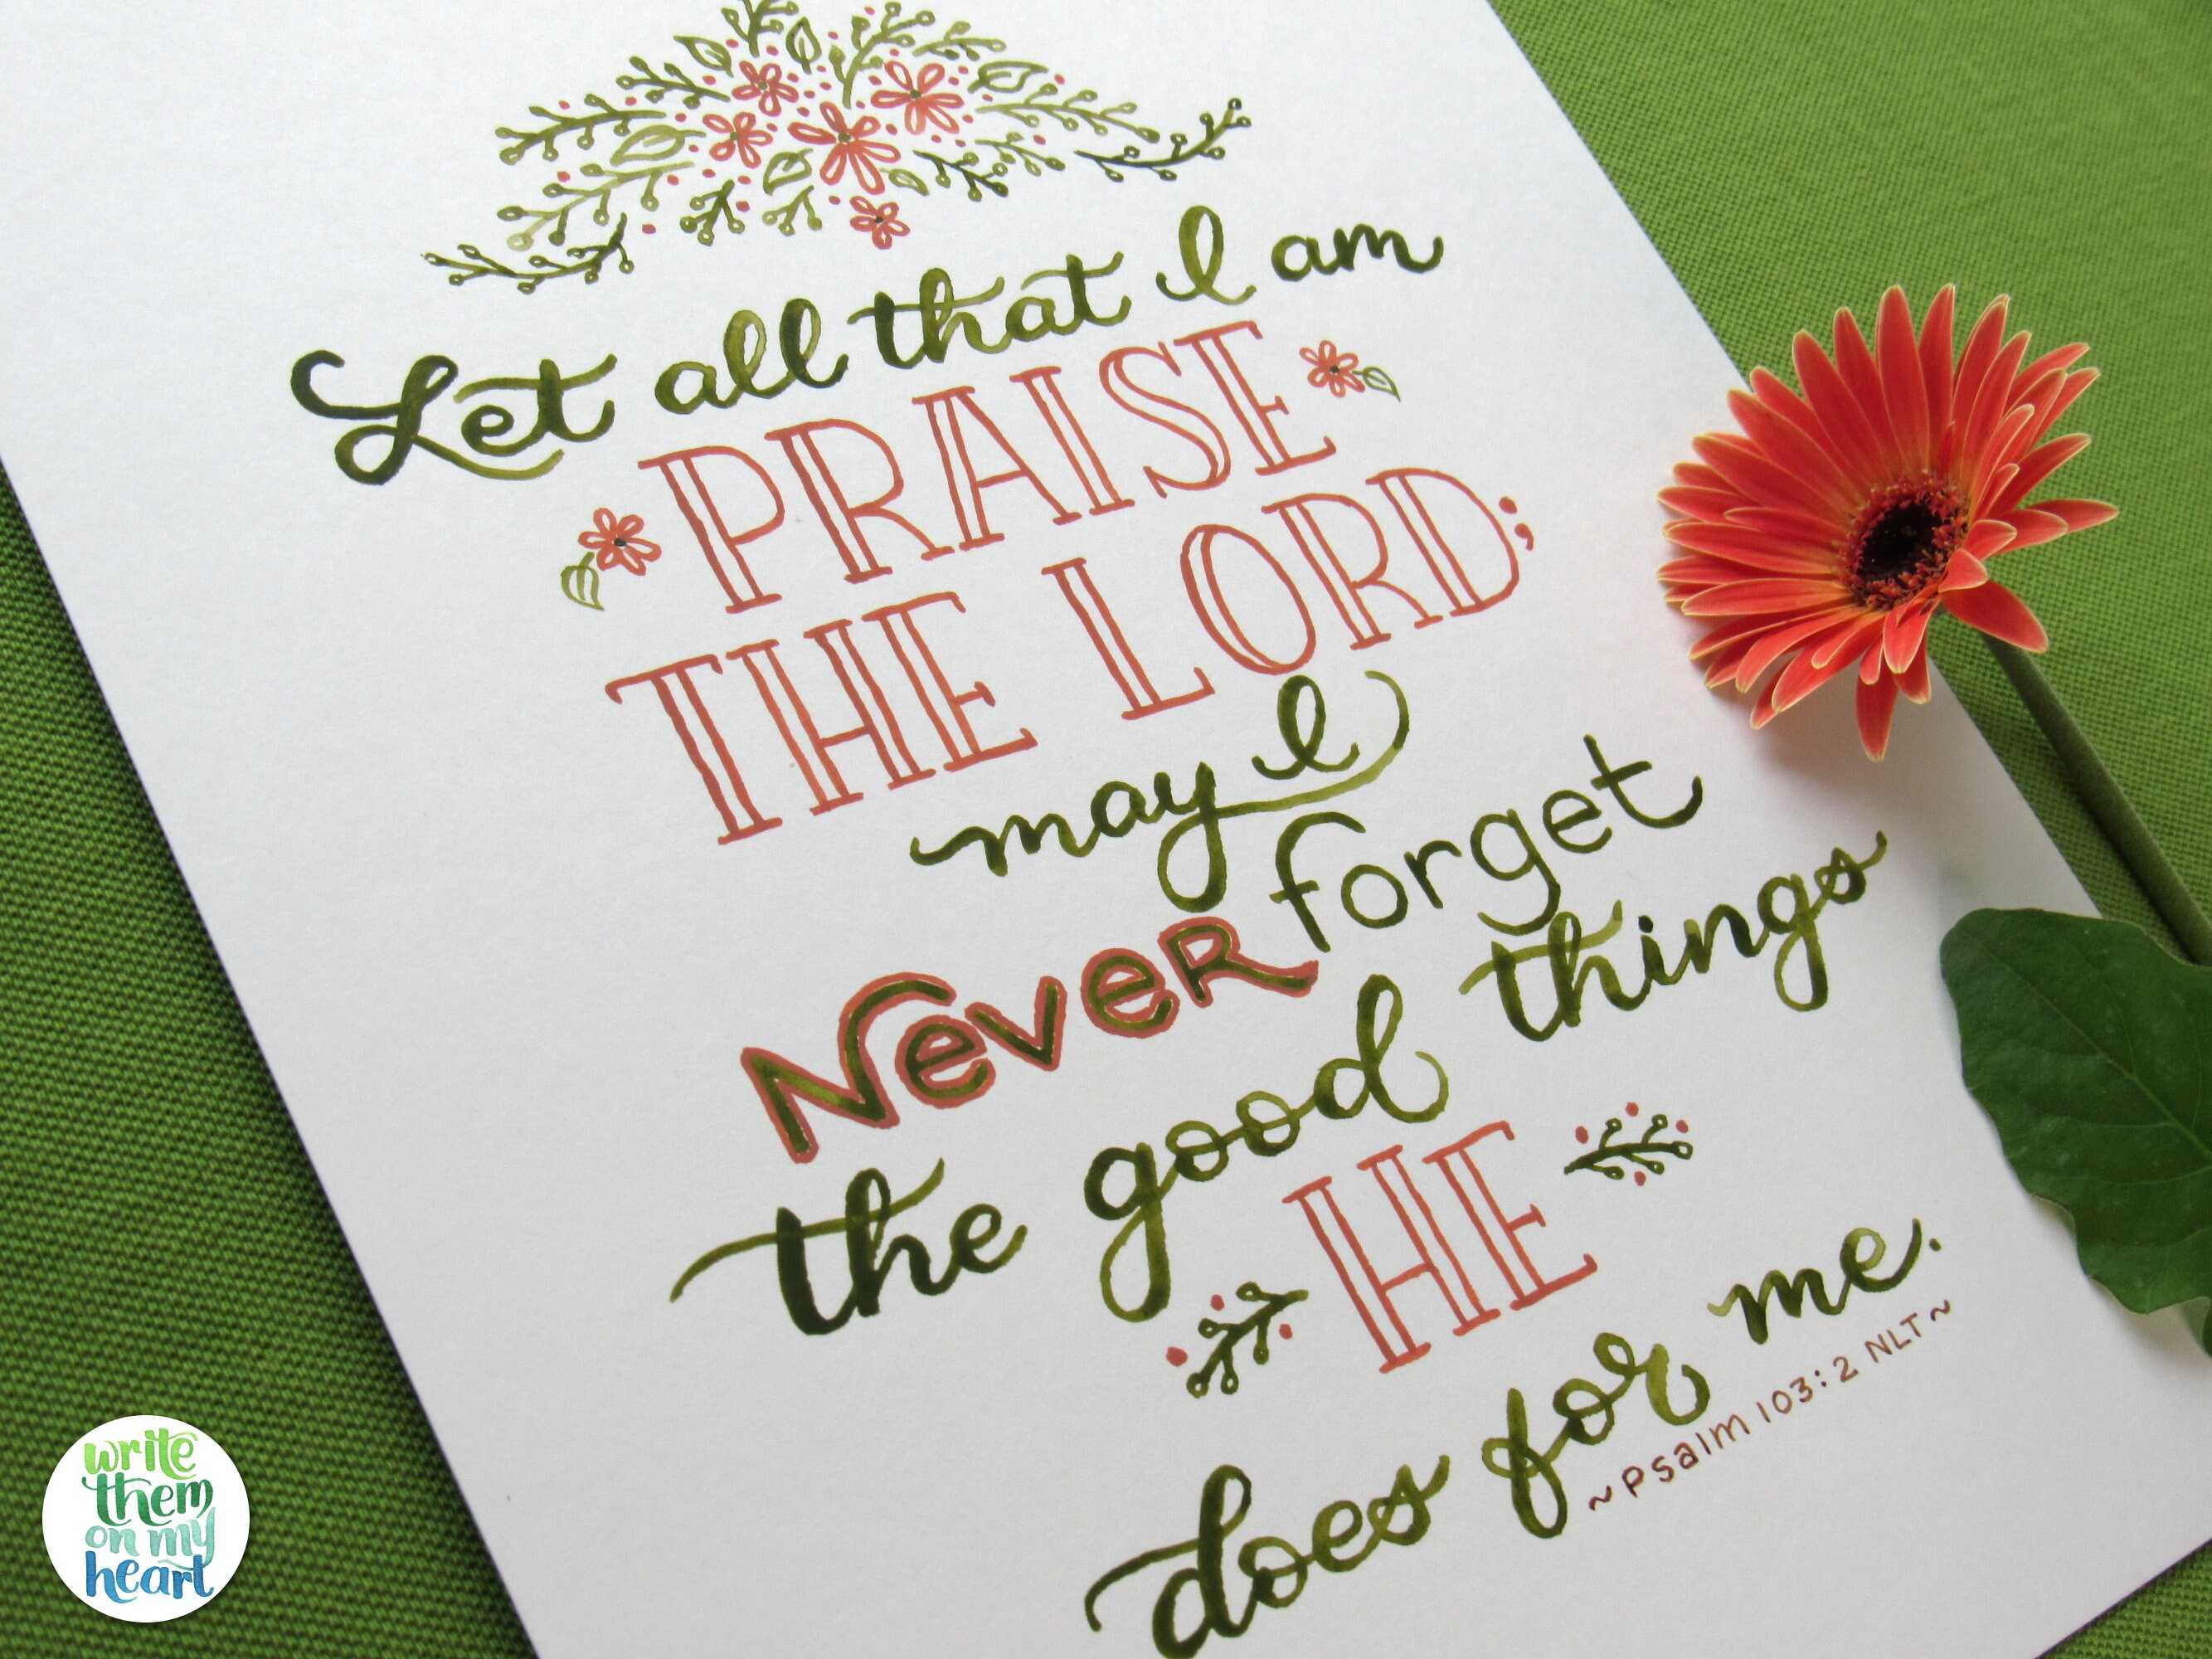 Let all that I am
PRAISE
THE LORD;
may I
Never forget
the good things
HE
does for me.
~Psalm 103:2 NLT~
write
them
on my
heart